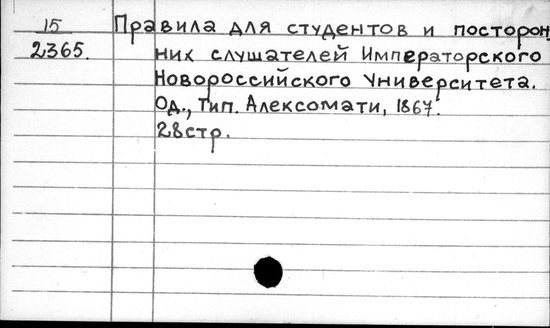 15 Правила для студентов и посторон
2365. них слушателей Императорского
Новороссийского Университета.
Од., Тип. Алексомати, 1867.
28стр.